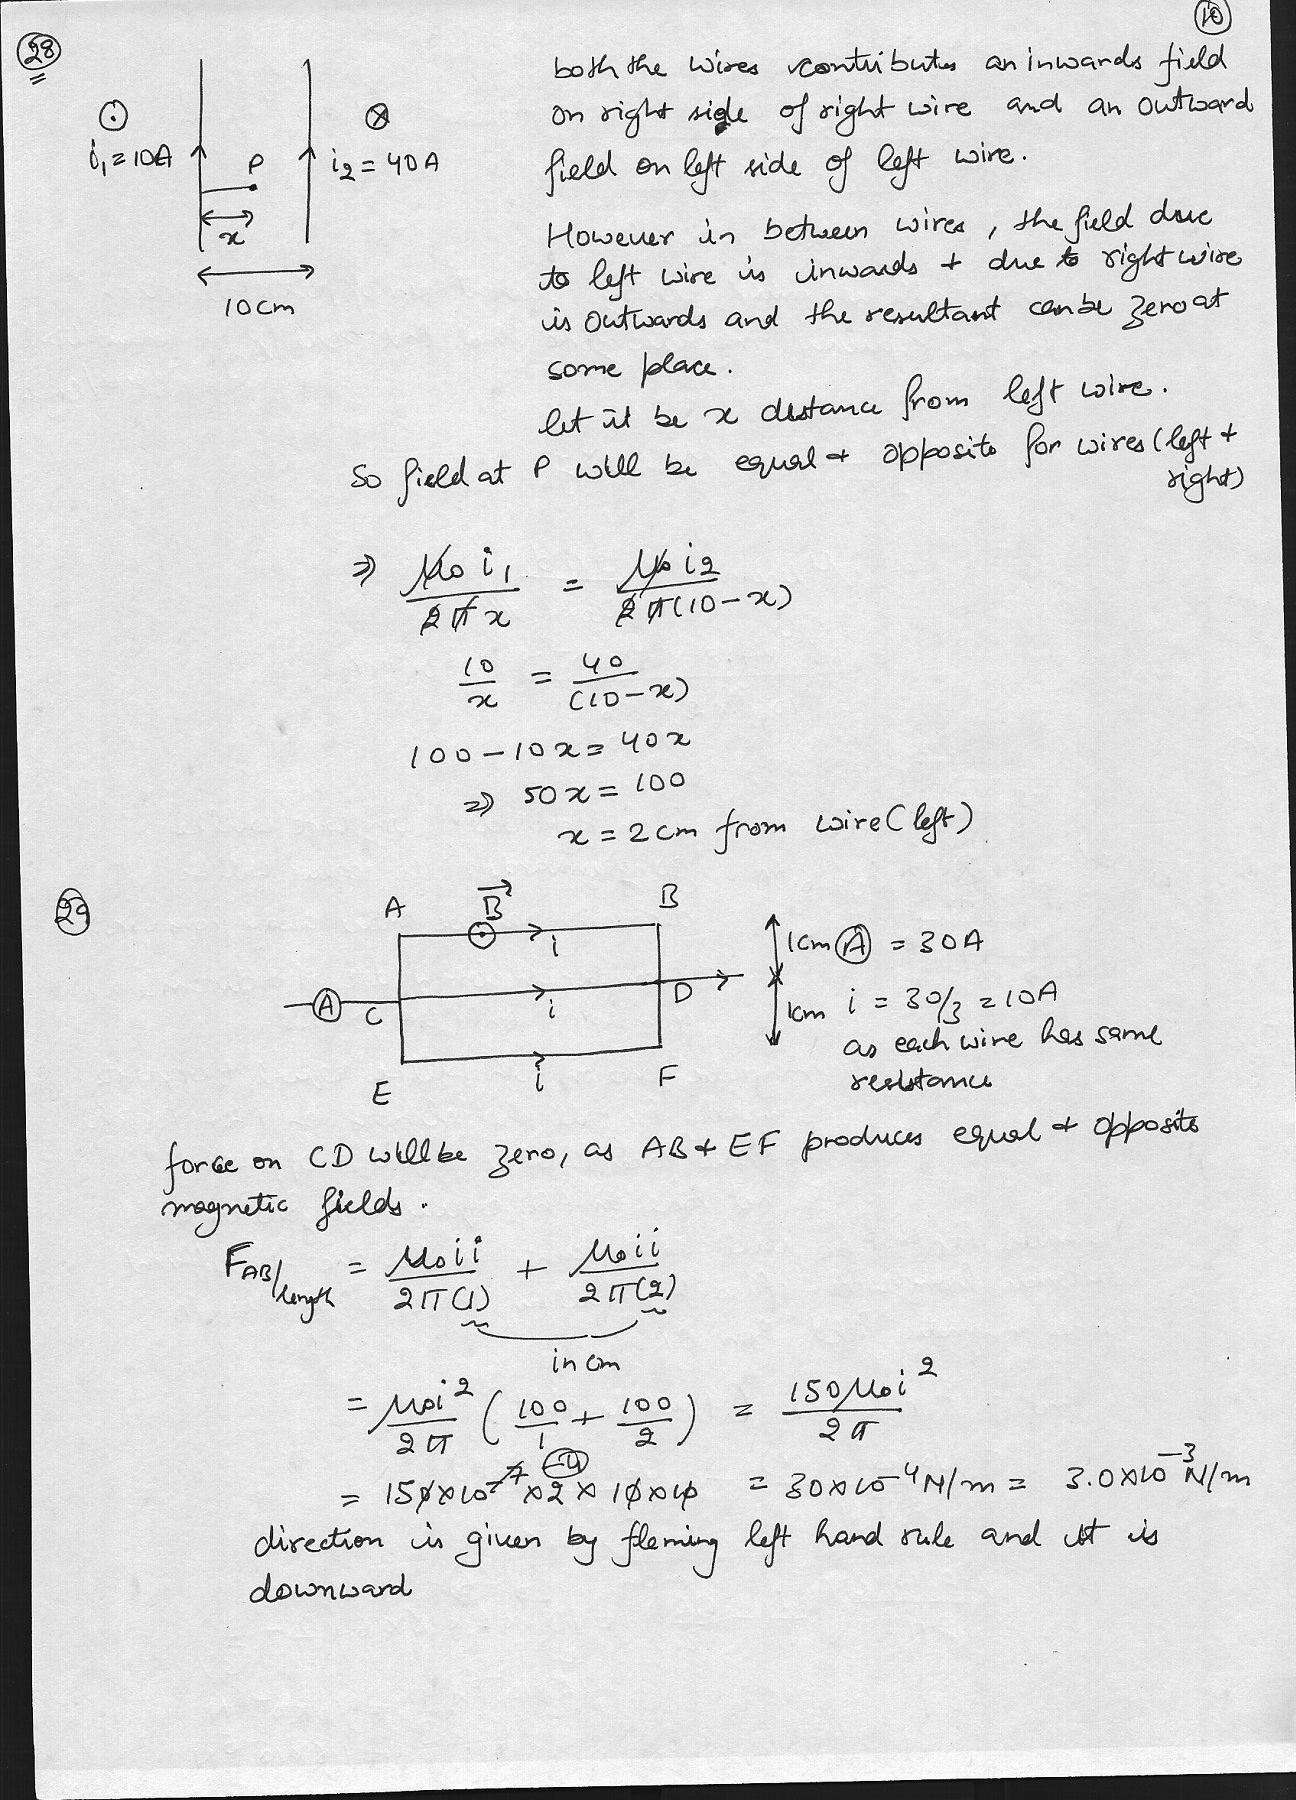 10
28
both the wires contributes an inwards field
on right side of right wire and an outward
field on left side of left wire.
i₁ = 10A
P
i₂ = 40A
x
10 cm
However in between wires, the field due
to left wire is inwards + due to right wire
is outwards and the resultant can be zero at
some place.
let it be x distance from left wire.
So field at P will be equal + opposite for wires (left +
right)
⇒ μ₀ i₁ / 2π x = μ₀ i₂ / 2π(10-x)
10/x = 40/(10-x)
100 - 10x = 40x
⇒ 50x = 100
x = 2cm from wire (left)
29
A B⃗ B
i
1cm Ⓐ = 30A
Ⓐ C i D
1cm i = 30/3 = 10A
as each wire has same
resistance
E i F
force on CD will be zero, as AB + EF produces equal + opposite
magnetic fields.
F AB/length = μ₀ii / 2π(1) + μ₀ii / 2π(2)
in cm
= μ₀i² / 2π (100/1 + 100/2) = 150μ₀i² / 2π
= 150×10⁻⁷ ⁻⁴ ×2× 10×10 = 30×10⁻⁴ N/m = 3.0×10⁻³ N/m
direction is given by fleming left hand rule and it is
downward